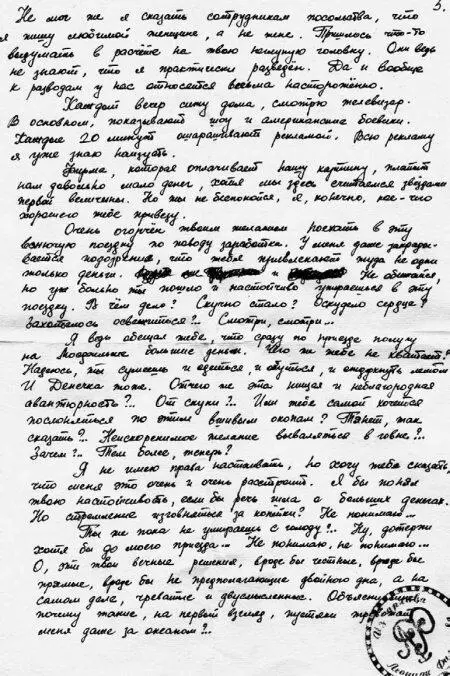 5.
Не мог же я сказать сотрудникам посольства, что
я пишу любимой женщине, а не жене. Пришлось что-то
выдумать в расчёте на твою неглупую головку. Они ведь
не знают, что я практически разведён. Да и вообще
к разводам у нас относятся весьма настороженно.
Каждый вечер сижу дома, смотрю телевизор.
В основном, показывают шоу и американские боевики.
Каждые 20 минут ошарашивают рекламой. Всю рекламу
я уже знаю наизусть.
Фирма, которая оплачивает нашу картину, платит
нам довольно мало денег, хотя мы здесь считаемся звёздами
первой величины. Но ты не беспокойся, я, конечно, кое-что
хорошего тебе привезу.
Очень огорчён твоим желанием поехать в эту
вонючую поездку по поводу заработка. У меня даже
вается подозрение, что тебя привлекают туда не одни
только деньги. и Не обижайся,
но уж больно ты пошло и настойчиво упираешься в эту
поездку. В чём дело? Скучно стало? Оскудело сердце?
Захотелось освежиться?.. Смотри, смотри...
Я ведь обещал тебе, что сразу по приезде получу
на Мосфильме большие деньги. Чего же тебе не хватает?
Надеюсь, ты сумеешь и одеться, и обуться, и отдохнуть летом
И Денечка тоже. Отчего же эта нищая и неблагородная
авантюрность?.. От скуки?.. Или тебе самой хочется
послоняться по этим вшивым окопам? Тянет, так
сказать?.. Неискоренимое желание вываляться в говне?..
Зачем?.. Тем более, теперь?
Я не имею права настаивать, но хочу тебе сказать,
что меня это очень и очень расстроит. Я бы понял
твою настойчивость, если бы речь шла о больших деньгах.
Но стремление изговняться за копейки? Не понимаю...
Ты же пока не умираешь с голоду?.. Ну, дотерпи
хотя бы до моего приезда... Не понимаю, не понимаю...
О, эти твои вечные решения, вроде бы честные, вроде бы
прямые, вроде бы не предполагающие двойного дна, а на
самом деле, чреватые и двусмысленные. Объясни
почему такие, на первый взгляд, пустяки тревожат
меня даже за океаном?..